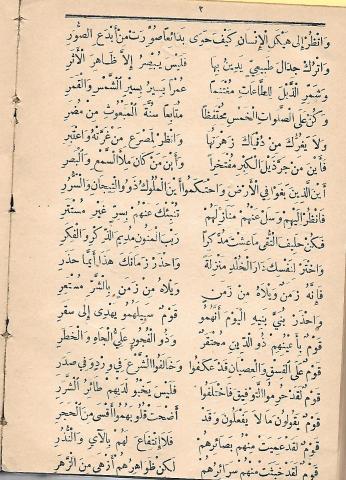 ٢
وَانْظُرْ إِلَى هَيْكَلِ الْإِنْسَانِ كَيْفَ حَوَى بَدَائِعًا صُوِّرَتْ مِنْ أَبْدَعِ الصُّوَرِ
وَاتْرُكْ جِدَالَ طَبِيعِيٍّ يَدِينُ بِهَا فَلَيْسَ يُبْصِرُ إِلَّا ظَاهِرَ الْأَثَرِ
وَشَمِّرِ الذَّيْلَ لِلطَّاعَاتِ مُغْتَنِمًا عُمْرًا يَسِيرُ بِسَيْرِ الشَّمْسِ وَالْقَمَرِ
وَكُنْ عَلَى الصَّلَوَاتِ الْخَمْسِ مُحْتَفِظًا مُتَابِعًا سُنَّةَ الْمَبْعُوثِ مِنْ مُضَرِ
وَلَا يَغُرَّكَ مِنْ دُنْيَاكَ زَهْرَتُهَا وَانْظُرْ لِمَصْرَعِ مَنْ غَرَّتْهُ وَاعْتَبِرِ
فَأَيْنَ مَنْ جَرَّ ذَيْلَ الْكِبْرِ مُفْتَخِرًا وَأَيْنَ مَنْ كَانَ مِلْءَ السَّمْعِ وَالْبَصَرِ
أَيْنَ الَّذِينَ بَغَوْا فِي الْأَرْضِ وَاحْتَكَمُوا أَيْنَ الْمُلُوكُ ذَوُو التِّيجَانِ وَالسُّرُرِ
فَانْظُرْ إِلَيْهِمْ وَسَلْ عَنْهُمْ مَنَازِلَهُمْ تُنْبِئْكَ عَنْهُمْ بِسِرٍّ غَيْرِ مُسْتَتِرِ
فَكُنْ حَلِيفَ التُّقَى مَا عِشْتَ مُدَّكِرًا رَيْبَ الْمَنُونِ مُدِيمَ الذِّكْرِ وَالْفِكَرِ
وَاخْتَرْ لِنَفْسِكَ دَارَ الْخُلْدِ مَنْزِلَةً وَاحْذَرْ زَمَانَكَ هَذَا أَيَّمَا حَذَرِ
فَإِنَّهُ زَمَنٌ وَيْلَاهُ مِنْ زَمَنٍ وَيْلَاهُ مِنْ زَمَنٍ بِالشَّرِّ مُسْتَعِرِ
وَاحْذَرْ بُنَيَّ بَنِيهِ الْيَوْمَ أَنَّهُمُو قَوْمٌ سَبِيلُهُمُو يَهْدِي إِلَى سَقَرِ
قَوْمٌ بِأَعْيُنِهِمْ ذُو الدِّينِ مُحْتَقَرٌ وَذُو الْفُجُورِ عَلِيُّ الْجَاهِ وَالْخَطَرِ
قَوْمٌ عَلَى الْفِسْقِ وَالْعِصْيَانِ قَدْ عَكَفُوا وَخَالَفُوا الشَّرْعَ فِي وِرْدٍ وَفِي صَدَرِ
قَوْمٌ لَقَدْ حُرِمُوا التَّوْفِيقَ فَاخْتَلَفُوا فَلَيْسَ يَخْبُو لَدَيْهِمْ طَائِرُ الشَّرَرِ
قَوْمٌ يَقُولُونَ مَا لَا يَفْعَلُونَ وَقَدْ أَضْحَتْ قُلُوبُهُمُو أَقْسَى مِنَ الْحَجَرِ
قَوْمٌ لَقَدْ عَمِيَتْ مِنْهُمْ بَصَائِرُهُمْ فَلَا انْتِفَاعَ لَهُمْ بِالْآيِ وَالنُّذُرِ
قَوْمٌ لَقَدْ خَبُثَتْ مِنْهُمْ سَرَائِرُهُمْ لَكِنْ ظَوَاهِرُهُمْ أَزْهَى مِنَ الزَّهَرِ